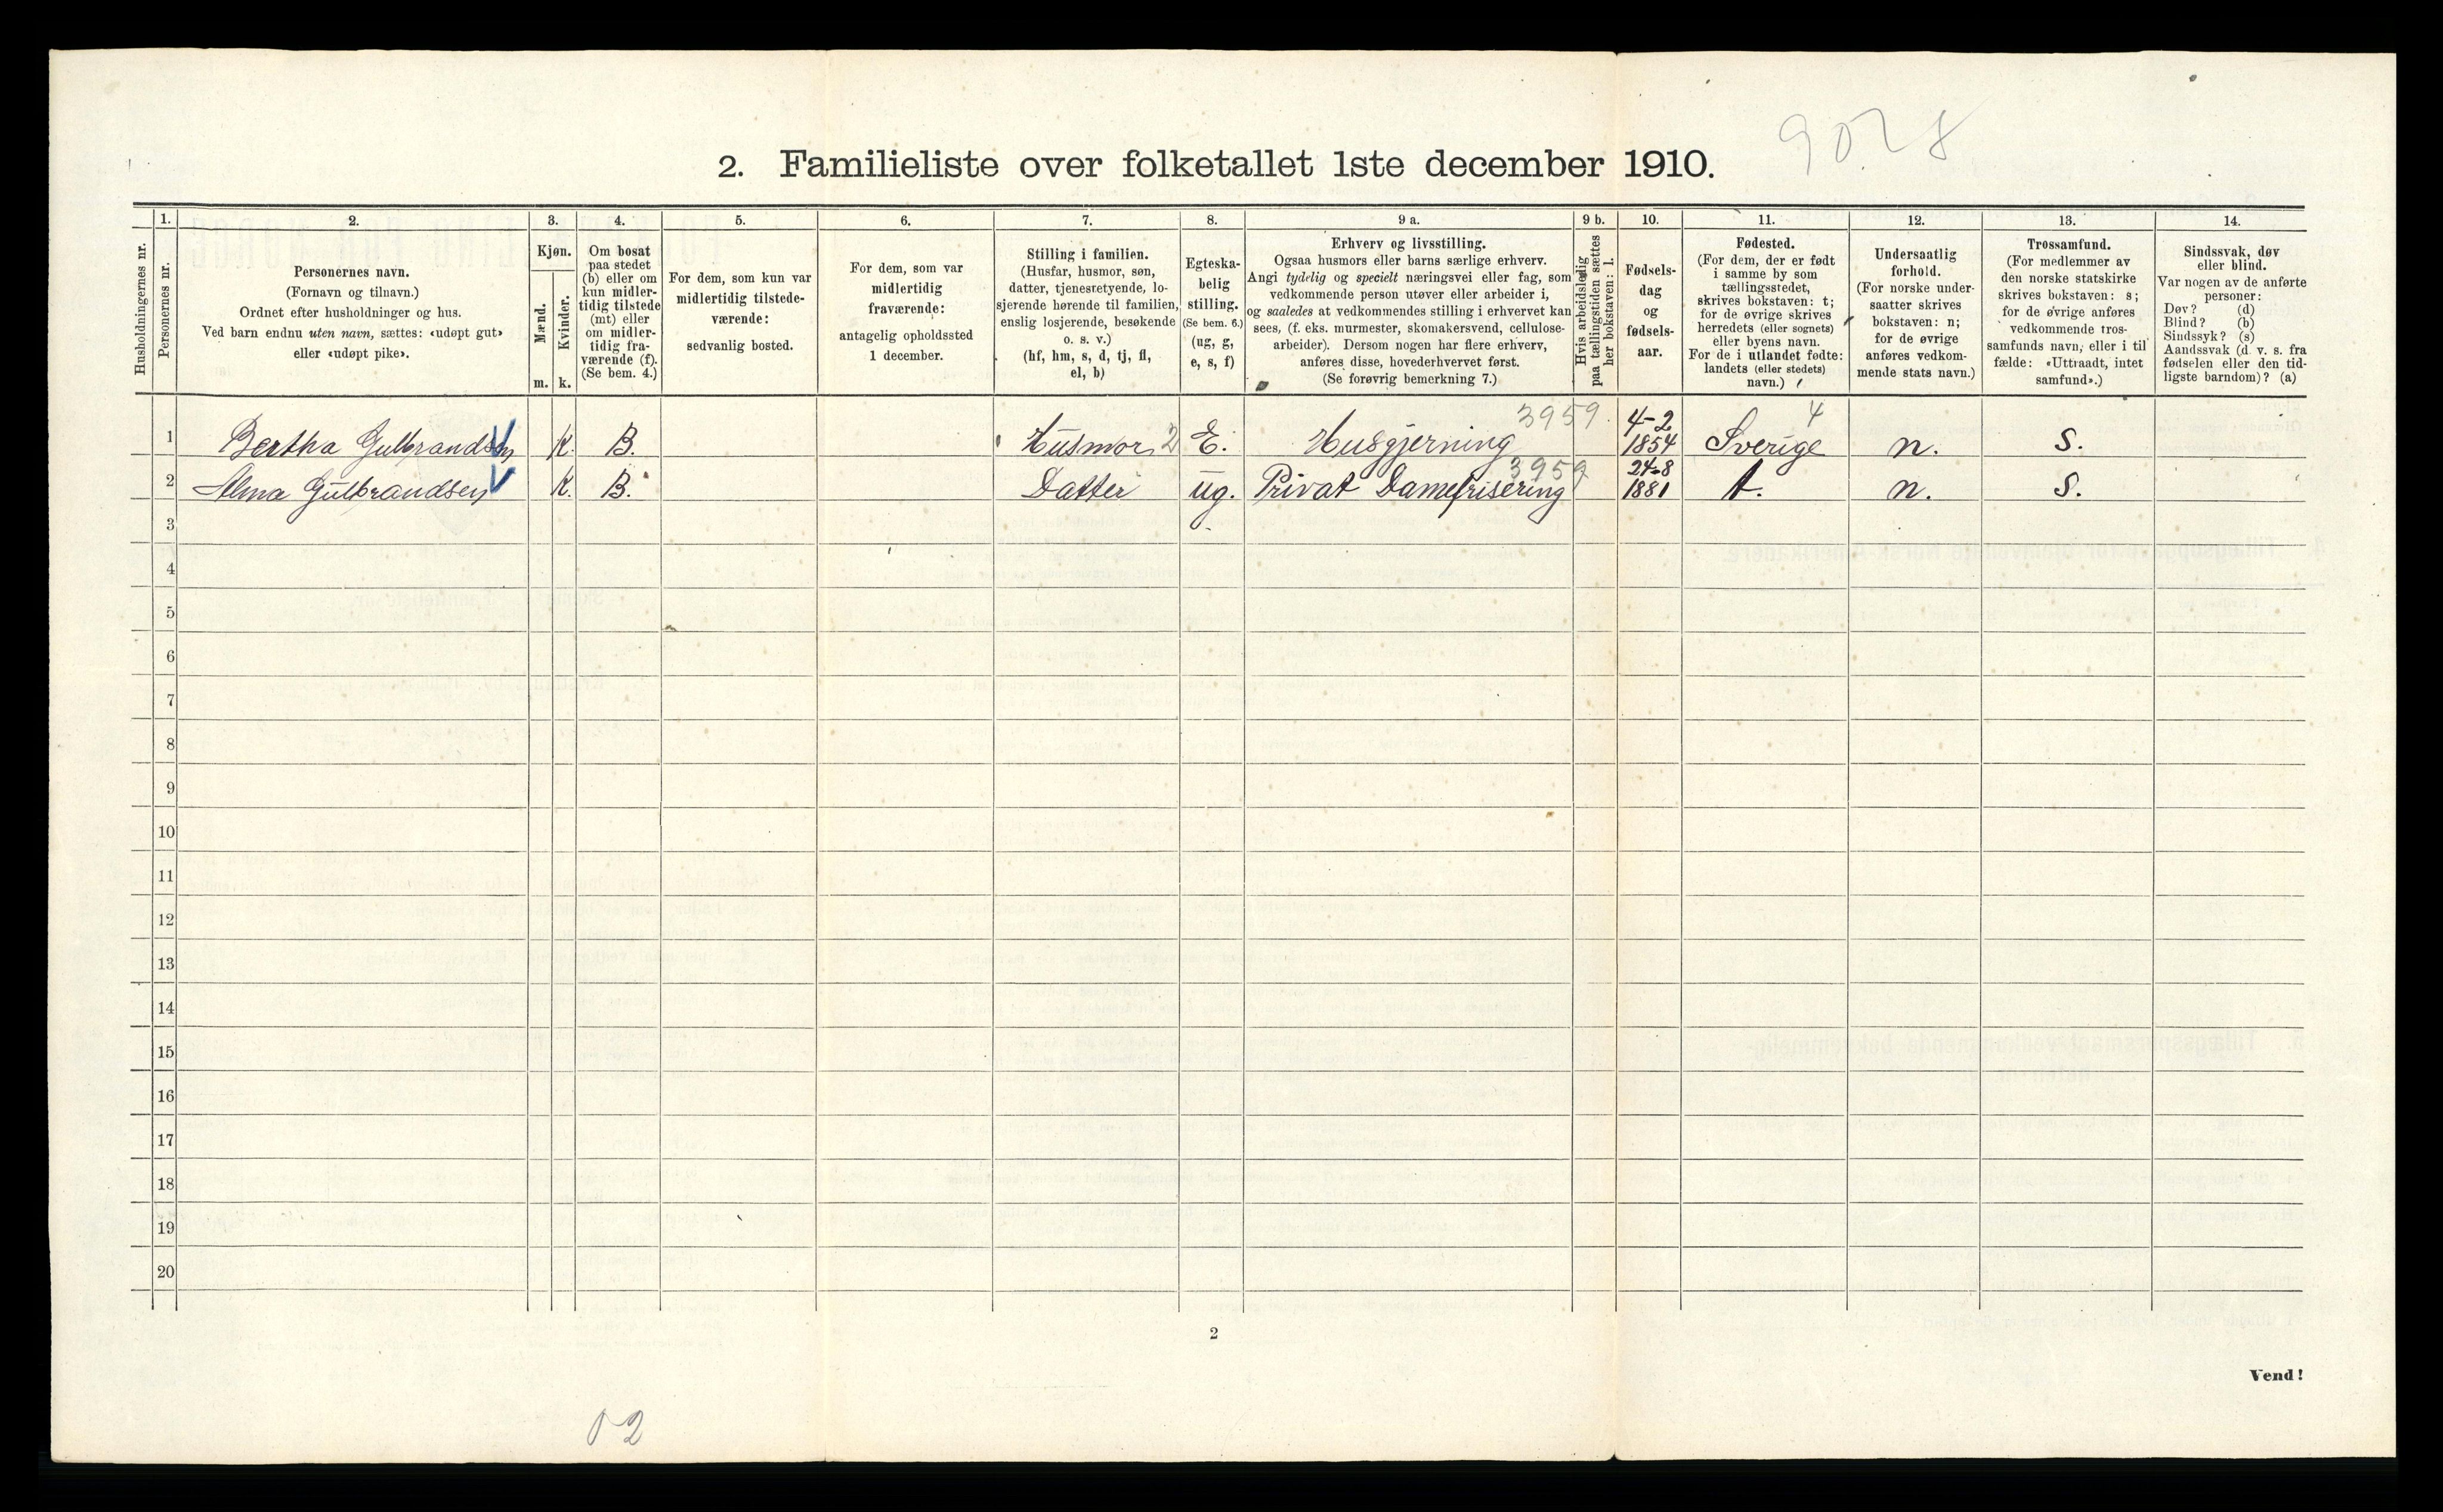 9028
2. Familieliste over folketallet 1ste december 1910.
Husholdningernes nr.
1.
Personernes nr.
2.
Personernes navn.
(Fornavn og tilnavn.)
Ordnet efter husholdninger og hus.
Ved barn endnu uten navn, sættes: «udøpt gut»
eller «udøpt pike».
3.
Kjøn.
Mænd.
Kvinder.
m. k.
4.
Om bosat
paa stedet
(b) eller om
kun midler-
tidig tilstede
(mt) eller
om midler-
tidig fra-
værende (f).
(Se bem. 4.)
5.
For dem, som kun var
midlertidig tilstede-
værende:
sedvanlig bosted.
6.
For dem, som var
midlertidig
fraværende:
antagelig opholdssted
1 december.
7.
Stilling i familien.
(Husfar, husmor, søn,
datter, tjenesretyende, lo-
sjerende hørende til familien,
enslig losjerende, besøkende
o. s. v.)
(hf, hm, s, d, tj, fl,
el, b)
8.
Egteska-
belig
stilling.
(Se bem. 6.)
(ug, g,
e, s, f)
9 a.
Erhverv og livsstilling.
Ogsaa husmors eller barns særlige erhverv.
Angi tydelig og specielt næringsvei eller fag, som
vedkommende person utøver eller arbeider i,
og saaledes at vedkommendes stilling i erhvervet kan
sees, (f. eks. murmester, skomakersvend, cellulose-
arbeider). Dersom nogen har flere erhverv,
anføres disse, hovederhvervet først.
(Se forøvrig bemerkning 7.)
9 b.
Hvis arbeidsledig
paa tællingstiden sættes
her bokstaven: l.
10.
Fødsels-
dag
og
fødsels-
aar.
11.
Fødested.
(For dem, der er født
i samme by som
tællingsstedet,
skrives bokstaven: t;
for de øvrige skrives
herredets (eller sognets)
eller byens navn.
For de i utlandet fødte:
landets (eller stedets)
navn.)
12.
Undersaatlig
forhold.
(For norske under-
saatter skrives
bokstaven: n;
for de øvrige
anføres vedkom-
mende stats navn.)
13.
Trossamfund.
(For medlemmer av
den norske statskirke
skrives bokstaven: s;
for de øvrige anføres
vedkommende tros-
samfunds navn, eller i til-
fælde: «Uttraadt, intet
samfund».)
14.
Sindssvak, døv
eller blind.
Var nogen av de anførte
personer:
Døv? (d)
Blind? (b)
Sindssyk? (s)
Aandssvak (d. v. s. fra
fødselen eller den tid-
ligste barndom)? (a)
3959. 4-2 4
1 Bertha Gulbrandsen K. B. Husmor 2 E. Husgjerning 1854 Sverige n. s.
3959 24-8
2 Alma Gulbrandsen K. B. Datter ug. Privat Damefrisering 1881 t. n. s.
3
4
5
6
7
8
9
10
11
12
13
14
15
16
17
18
19
20
2
Vend!
02